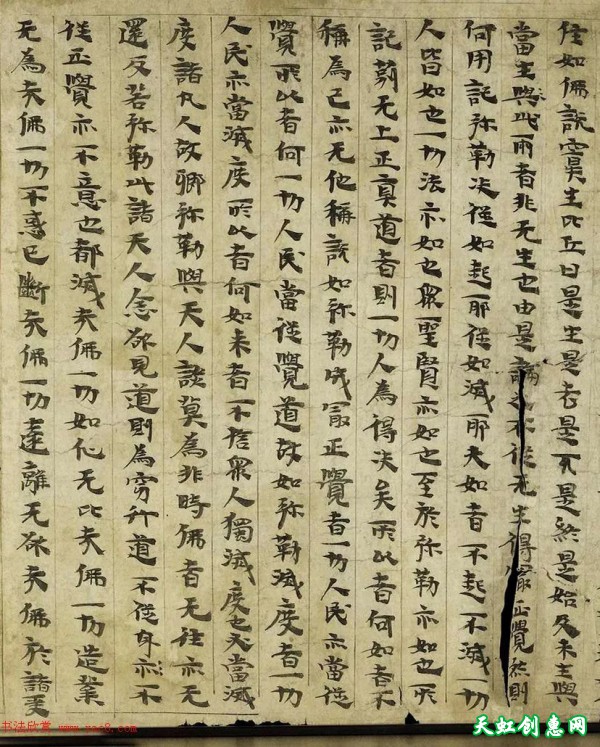 住如佛說生比丘曰是生是老是死是終是始及未生與
當生與此兩者非无生也由是論之不從无生得最正覺然則
何用記弥勒决從如起耶從如滅耶夫如者不起不滅一切
人皆如也一切法亦如也眾聖賢亦如也至於弥勒亦如也所
記莂无上正真道者則一切人為得决矣所以者何如者不
稱為己亦无他稱說如弥勒成最正覺者一切人民亦當從
覺所以者何一切人民當從覺道故如弥勒滅度者一切
人民亦當滅度所以者何如来者不捨眾人獨滅度也必當滅
度諸凡人故卿弥勒與天人談莫為非時佛者无往亦无
還反若弥勒此諸天人念欲見道則為窮行道不從身亦不
從正覺亦不意也都滅夫佛一切如化无比夫佛一切造業
无為夫佛一切不惑已斷夫佛一切遠離无欲夫佛於諸受
书法欣赏
天虹创惠网